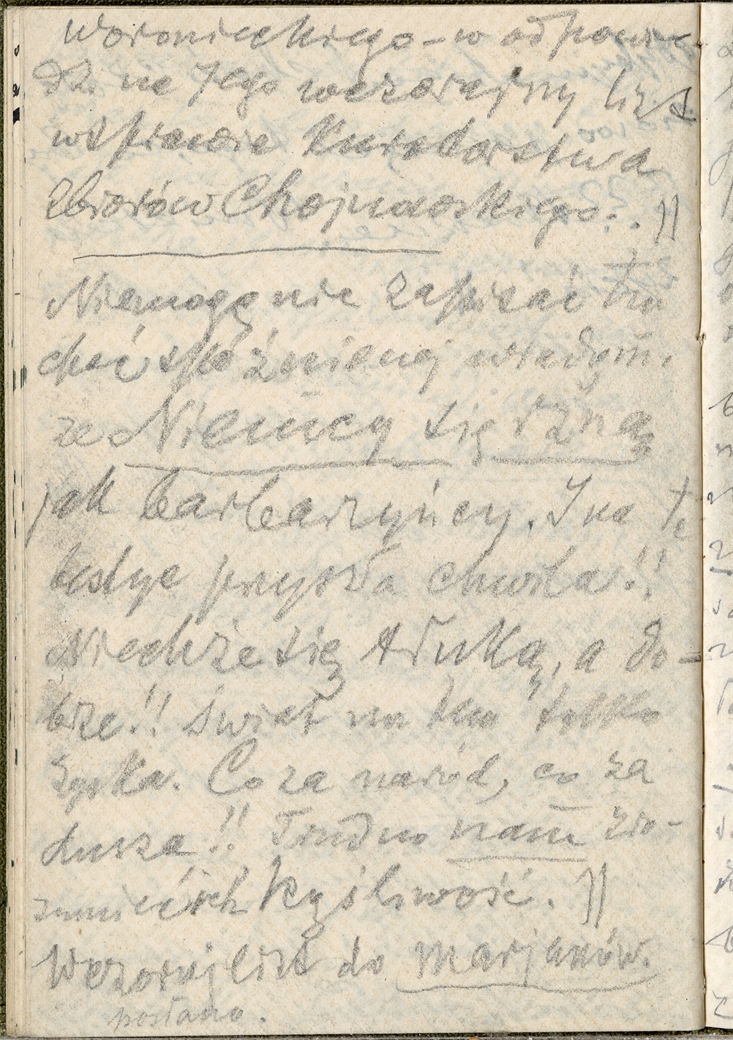 Woronieckiego – w odpowie-
dź na Jego wczorajszy list
w sprawie Kuratorstwa
zbiorów Chojnowskiego. . //
Niemogę nie zapisać tu
choć spóźnionej wiadom.
że Niemcy się rżną
jak barbarzyńcy. I na te
bestye przyszła chwila!!
Niechże się tłuką, a do-
brze!! Świat na tem tylko
zyska. Co za naród, co za
dusza!! Trudno nam zro-
zumieć ich kąśliwość. //
Wczoraj list do Marjanów.
posłano.